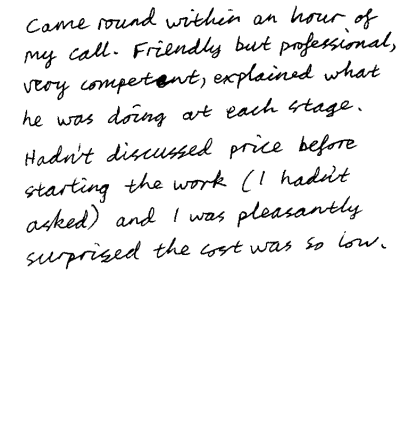 Came round within an hour of
my call. Friendly but professional,
very competent, explained what
he was doing at each stage.
Hadn't discussed price before
starting the work (I hadn't
asked) and I was pleasantly
surprised the cost was so low.